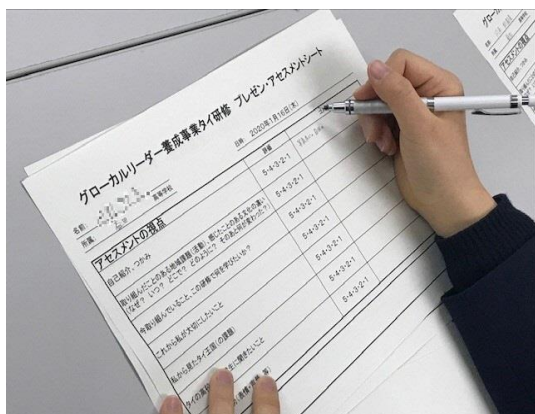 グローカルリーダー養成事業タイ研修 プレゼン・アセスメントシート
日時: 2020年1月16日(木)
名前:
所属: 高等学校
アセスメントの視点
評価
自己紹介、つかみ
5・4・3・2・1
取り組んだことのある地域課題(活動)、感じたことのある文化の違い
(なぜ? いつ? どこで? どのように? そのあと何が変わった?)
5・4・3・2・1
今取り組んでいること、この研修で何を学びたいか?
5・4・3・2・1
これから私が大切にしたいこと
5・4・3・2・1
私から見たタイ王国(の課題)
5・4・3・2・1
タイの高校 生に聞きたいこと
5・4・3・2・1
グローカル
アセスメントの視点
自己紹介、つ